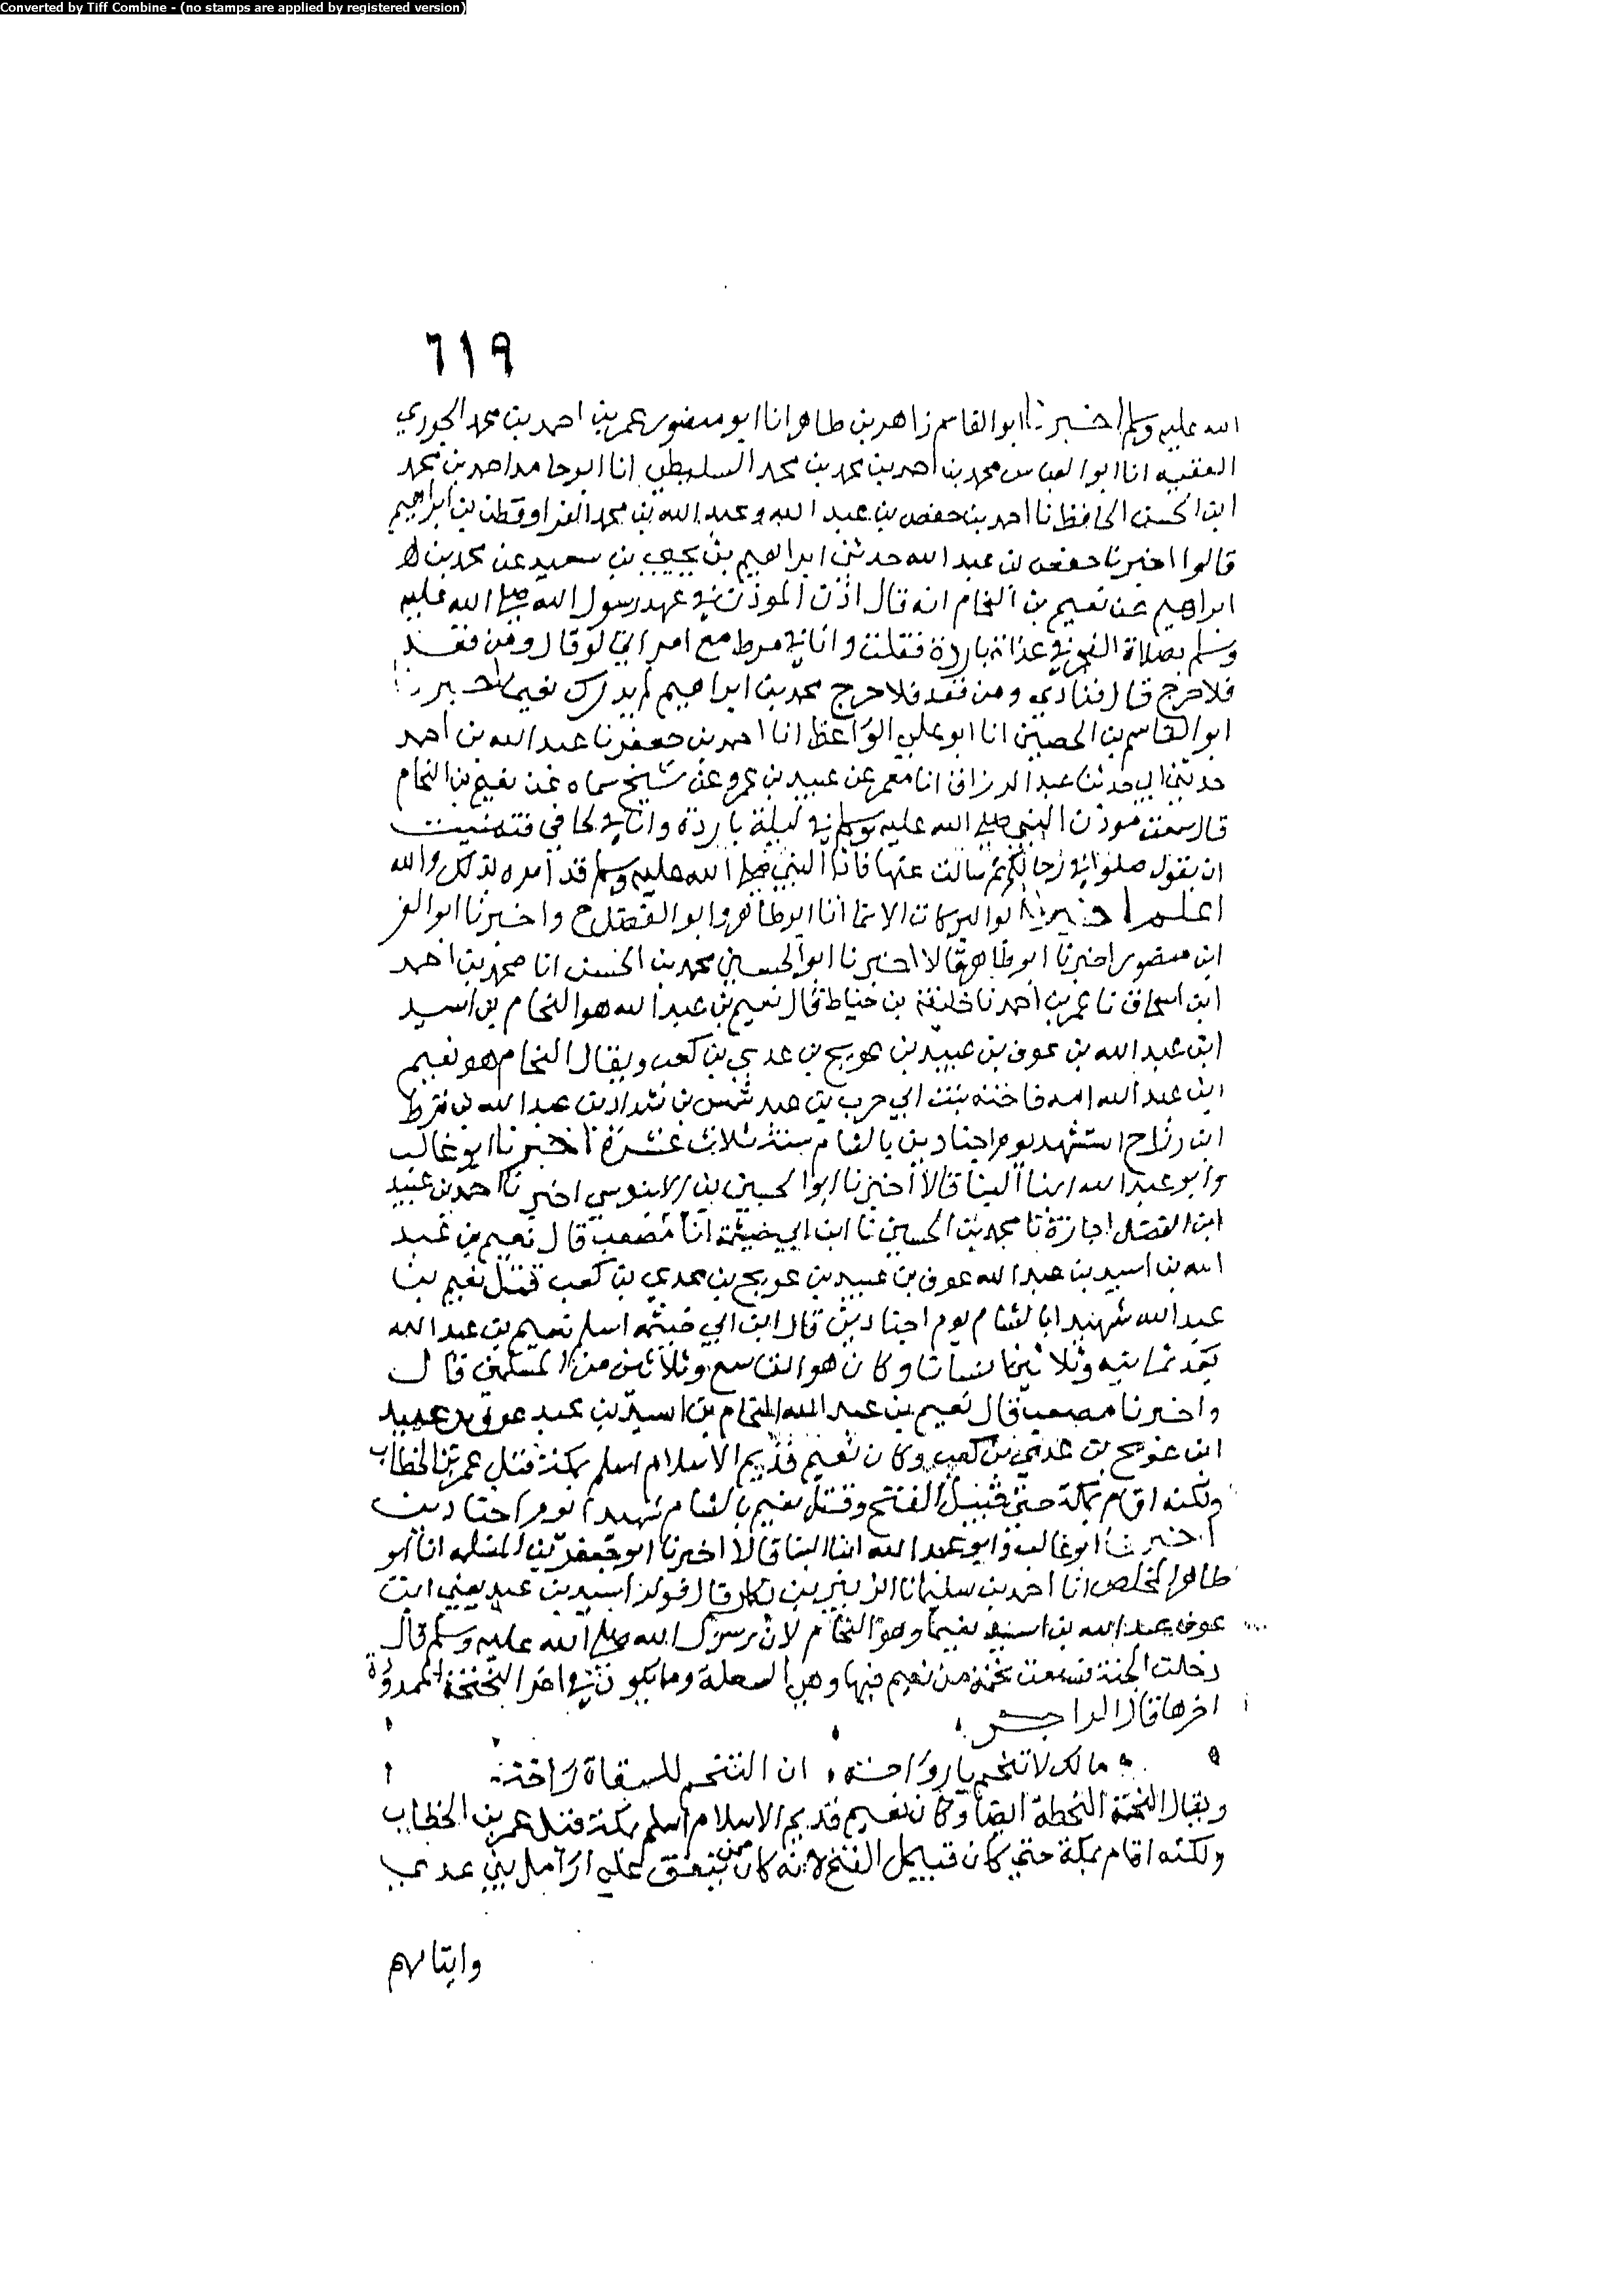 Converted by Tiff Combine - (no stamps are applied by registered version)
٦١٩
الله عليه وسلم اخبرنا ابو القاسم زاهر بن طاهر انا ابو منصور عمر بن احمد بن محمد الجوري
الفقيه انا ابو العباس محمد بن احمد بن محمد بن محمد السليطي انا ابو حامد احمد بن محمد
ابن الحسن الحافظ نا احمد بن حفص بن عبد الله وعبد الله بن محمد الفرا وقطن بن ابراهيم
قالوا اخبرنا حفص بن عبد الله حدثني ابراهيم بن يحيى بن سعيد عن محمد بن
ابراهيم عن نعيم بن النحام انه قال اذن الموذن في عهد رسول الله صلى الله عليه
وسلم بصلاة الفجر في غداة باردة فقلت وانا في مرط مع امراتي لو قال ومن فقد
فلا حرج قال فنادى ومن فقد فلا حرج محمد بن ابراهيم لم يدرك نعيما اخبرنا
ابو القاسم بن الحصين انا ابو علي الواعظ انا احمد بن جعفر نا عبد الله بن احمد
حدثني ابي حدثنا عبد الرزاق انا معمر عن عبيد بن عمرو عن شيخ سماه عن نعيم بن النحام
قال سمعت موذن النبي صلى الله عليه وسلم في ليلة باردة وانا في لحافي فتمنيت
ان يقول صلوا في رحالكم ثم سالت عنها فاذا النبي صلى الله عليه وسلم قد امره بذلك والله
اعلم اخبرنا ابو البركات الانما انا ابو طاهر وابو الفضل ح واخبرنا ابو العز
ابن منصور اخبرنا ابو طاهر قالا اخبرنا ابو الحسين محمد بن الحسن انا محمد بن احمد
ابن اسحاق نا عمر بن احمد نا خليفة بن خياط قال نعيم بن عبد الله هو النحام بن اسيد
ابن عبد الله بن عوف بن عبيد بن عويج بن عدي بن كعب ويقال النحام هو نعيم
ابن عبد الله امه فاخته بنت ابي حرب بن عبد شمس بن شداد بن عبد الله بن قرط
ابن رزاح استشهد يوم اجنادين بالشام سنة ثلاث عشرة اخبرنا ابو غالب
وابو عبد الله ابنا البنا قالا اخبرنا ابو الحسين بن الابنوسي اخبرنا احمد بن عبيد
ابن الفضل اجازة نا محمد بن الحسين نا ابن ابي خيثمة انا مصعب قال نعيم بن عبد
الله بن اسيد بن عبد الله عوف بن عبيد بن عويج بن عدي بن كعب قتل نعيم بن
عبد الله شهيدا بالشام يوم اجنادين قال ابن ابي خيثمه اسلم نعيم بن عبد الله
بعد ثمانيه وثلاثين انسانا وكان هو التاسع وثلاثين من المسلمين قال
واخبرنا مصعب قال نعيم بن عبد الله النحام بن اسيد بن عبد عوف بن عبيد
ابن عويج بن عدي بن كعب وكان نعيم قديم الاسلام اسلم بمكة قبل عمر بن الخطاب
ولكنه اقام بمكة حتى قبيل الفتح وقتل نعيم بالشام شهيدا يوم اجنادين
اخبرنا ابو غالب وابو عبد الله ابنا البنا قالا اخبرنا ابو جعفر بن المسلمه انا ابو
طاهر المخلص انا احمد بن سليمان الزبير بن بكار قال فولد اسيد بن عبد يعني ابن
عوف عبد الله بن اسيد نعيما وهو النحام لان رسول الله صلى الله عليه وسلم قال
دخلت الجنة فسمعت نحمة من نعيم فيها وهي السعلة وما يكون في اخر النحنحة الممدودة
اخرها قال الراجز
مالك لا تنحم يا رواحه ان النحم للسقاة راحة
ويقال النحمة النحطة ايضا وكان نعيم قديم الاسلام اسلم بمكة قبل عمر بن الخطاب
ولكنه اقام بمكة حتى كان قبيل الفتح لانه كان ممن ينفق على ارامل بني عدي
وايتامهم